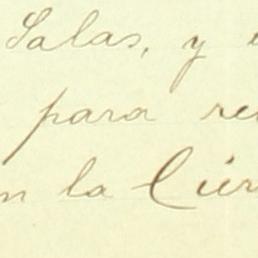 Salas, y
para re
n la Cier